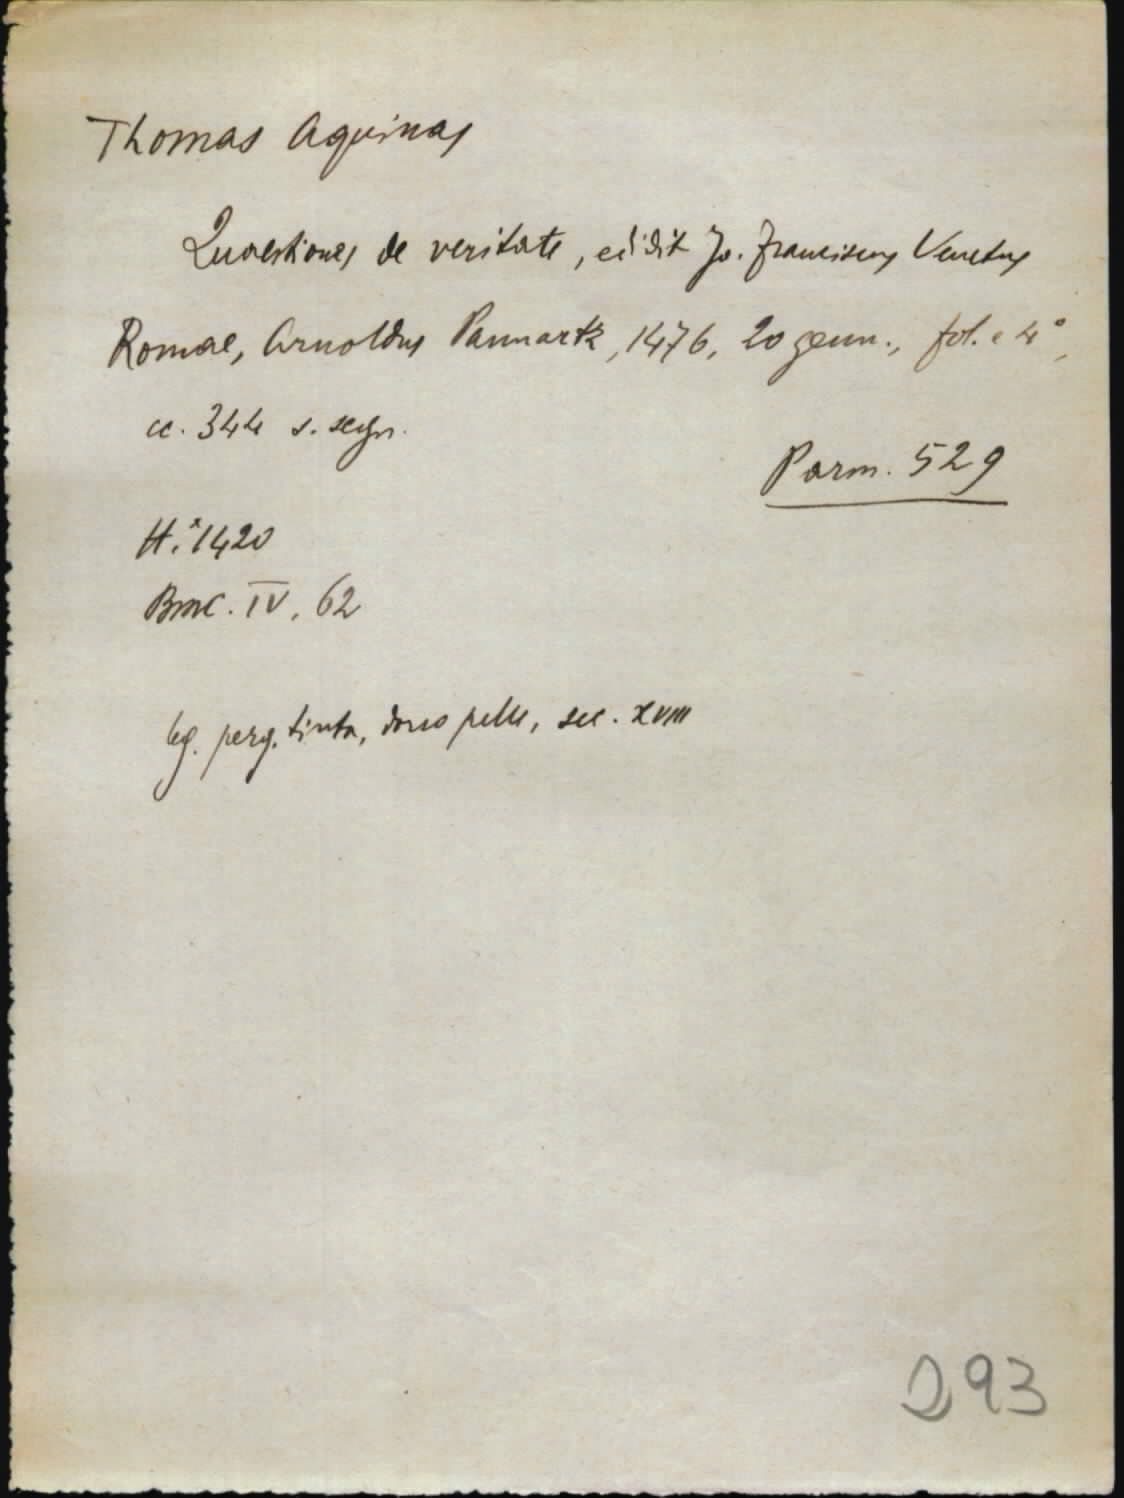 Thomas Aquinas
Quaestiones de veritate, edidit Jo. Franciscus Venetus
Romae, Arnoldus Pannartz, 1476, 20 genn., fol. e 4°,
cc. 344 s. segn.
Parm. 529
H.*1420
BMC. IV, 62
leg. perg. tinta, dorso pelle, sec. XVIII
293